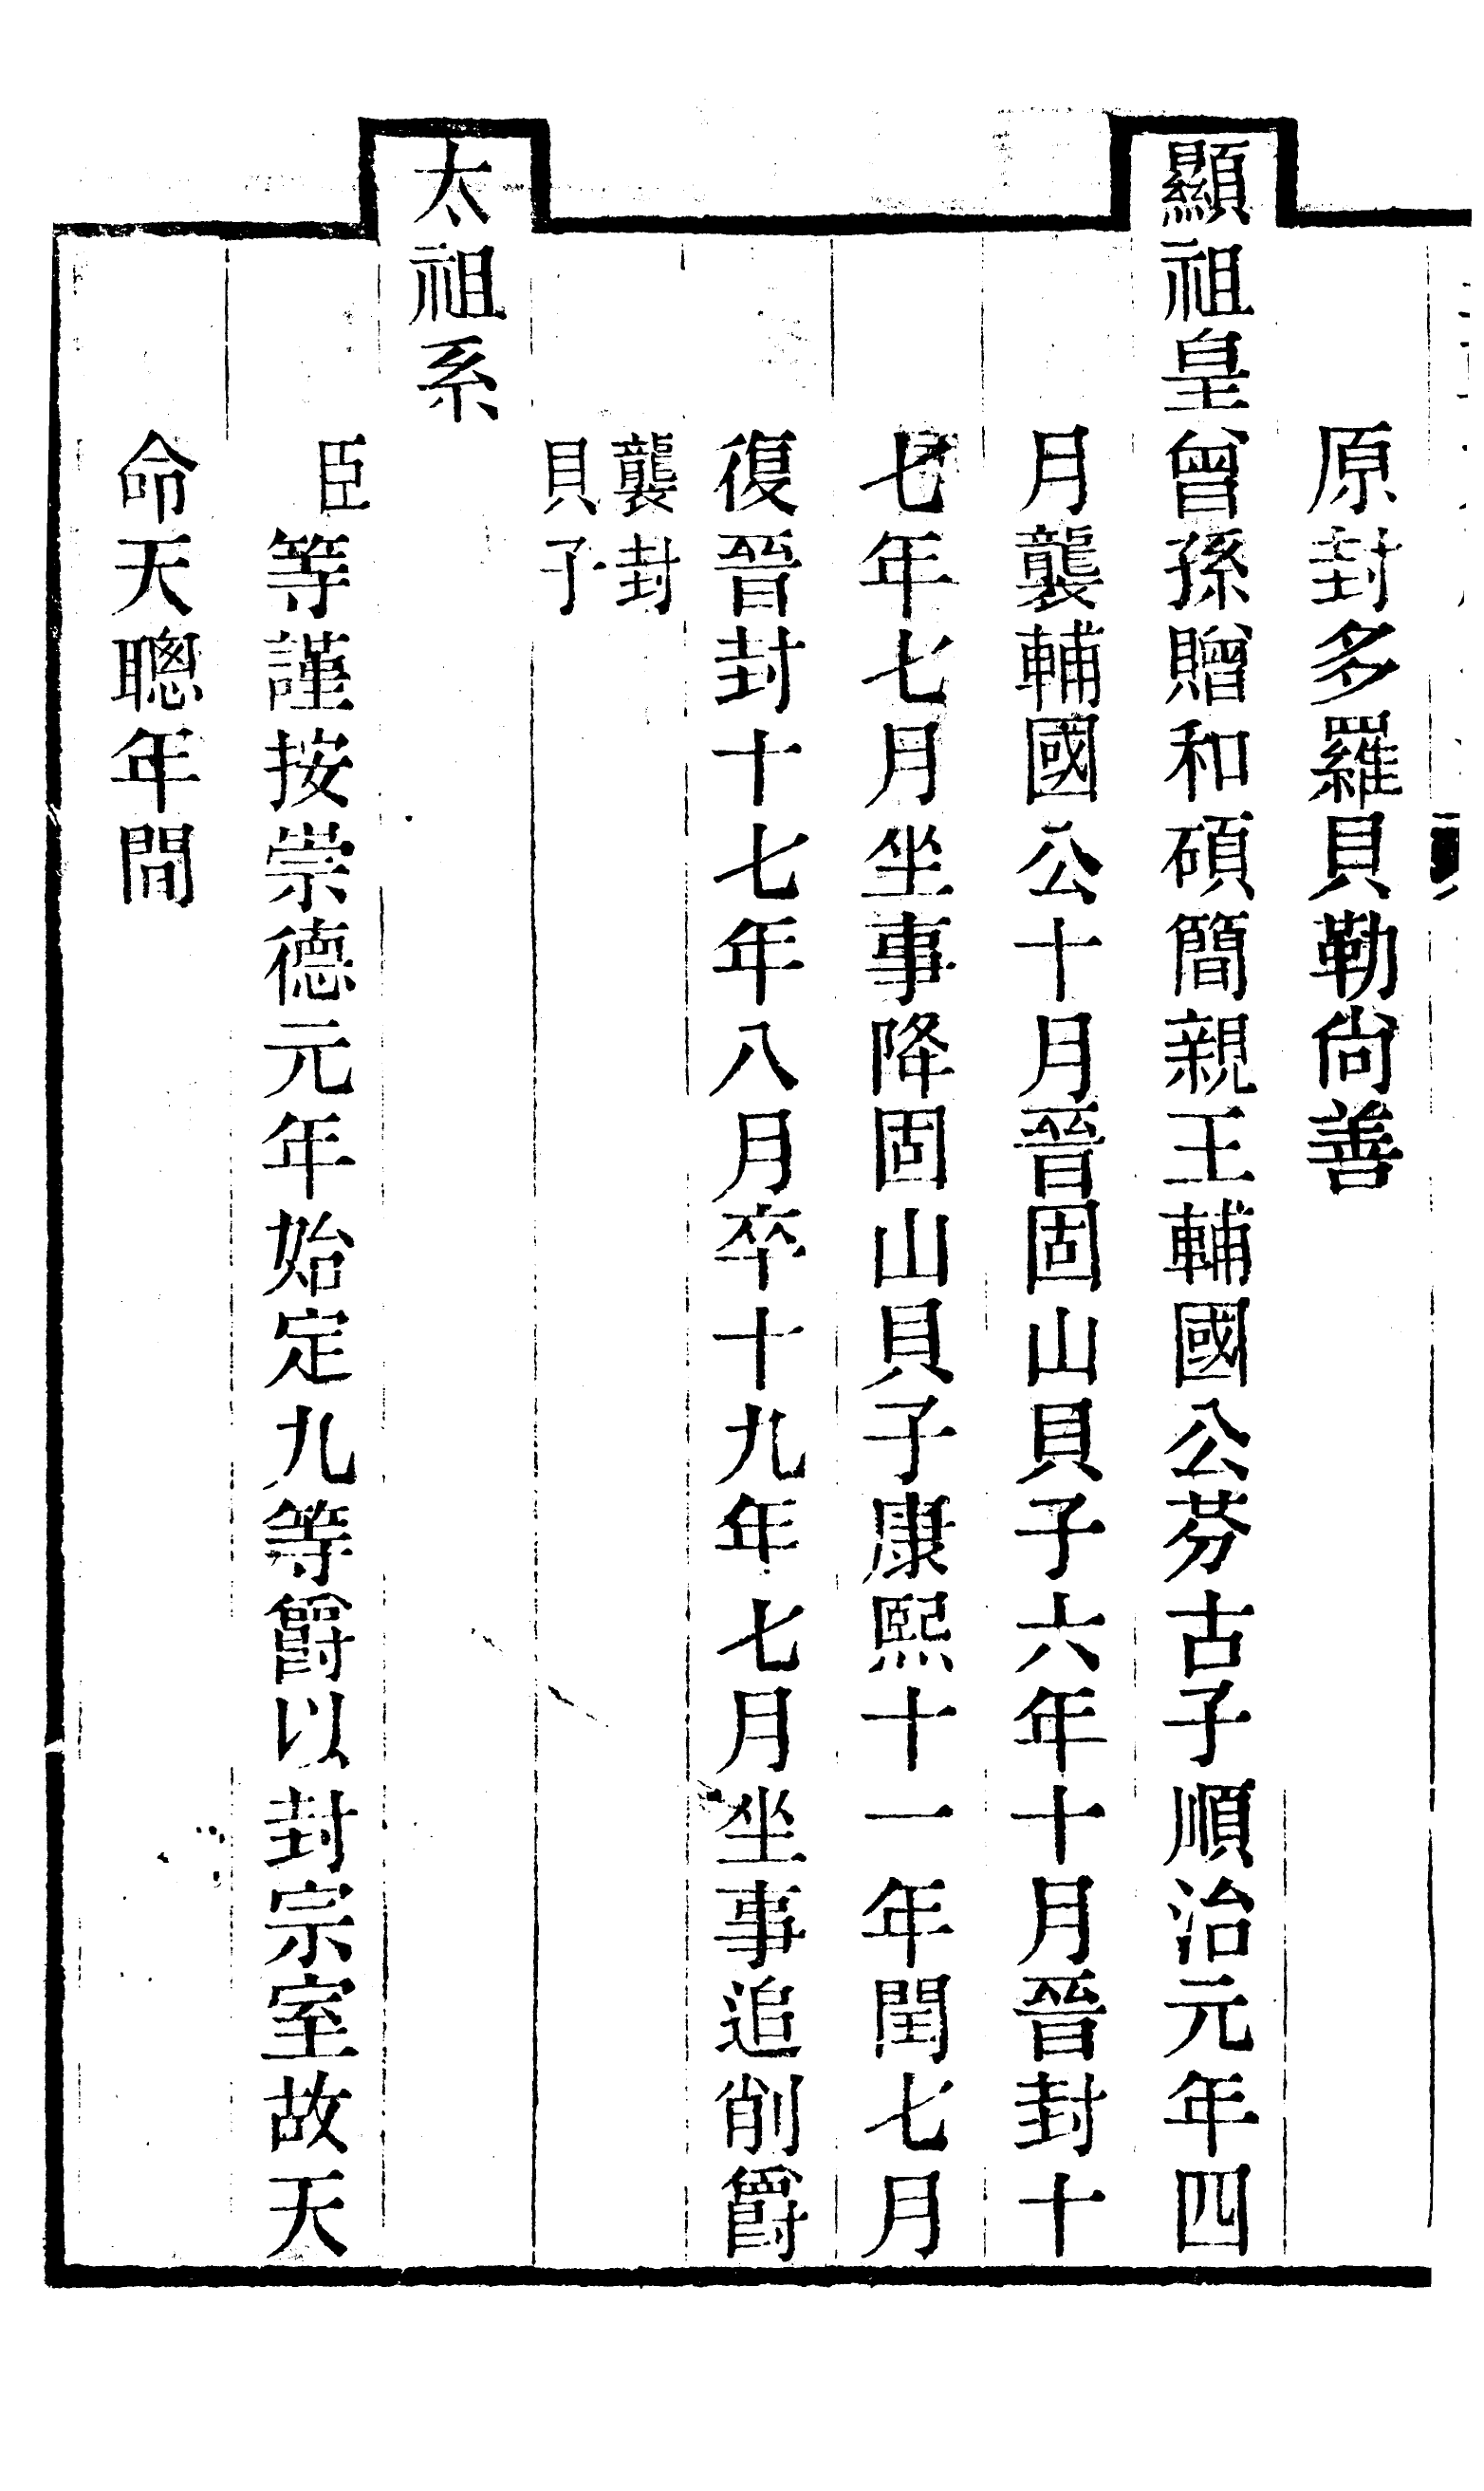 原封多羅貝勒尙善
顯祖皇曾孫贈和碩簡親王輔國公芬古子順治元年四
月襲輔國公十月晉固山貝子六年十月晉封十
七年七月坐事降固山貝子康熙十一年閏七月
復晉封十七年八月卒十九年七月坐事追削爵
襲封
貝子
太祖系
臣等謹按崇德元年始定九等爵以封宗室故天
命天聰年間